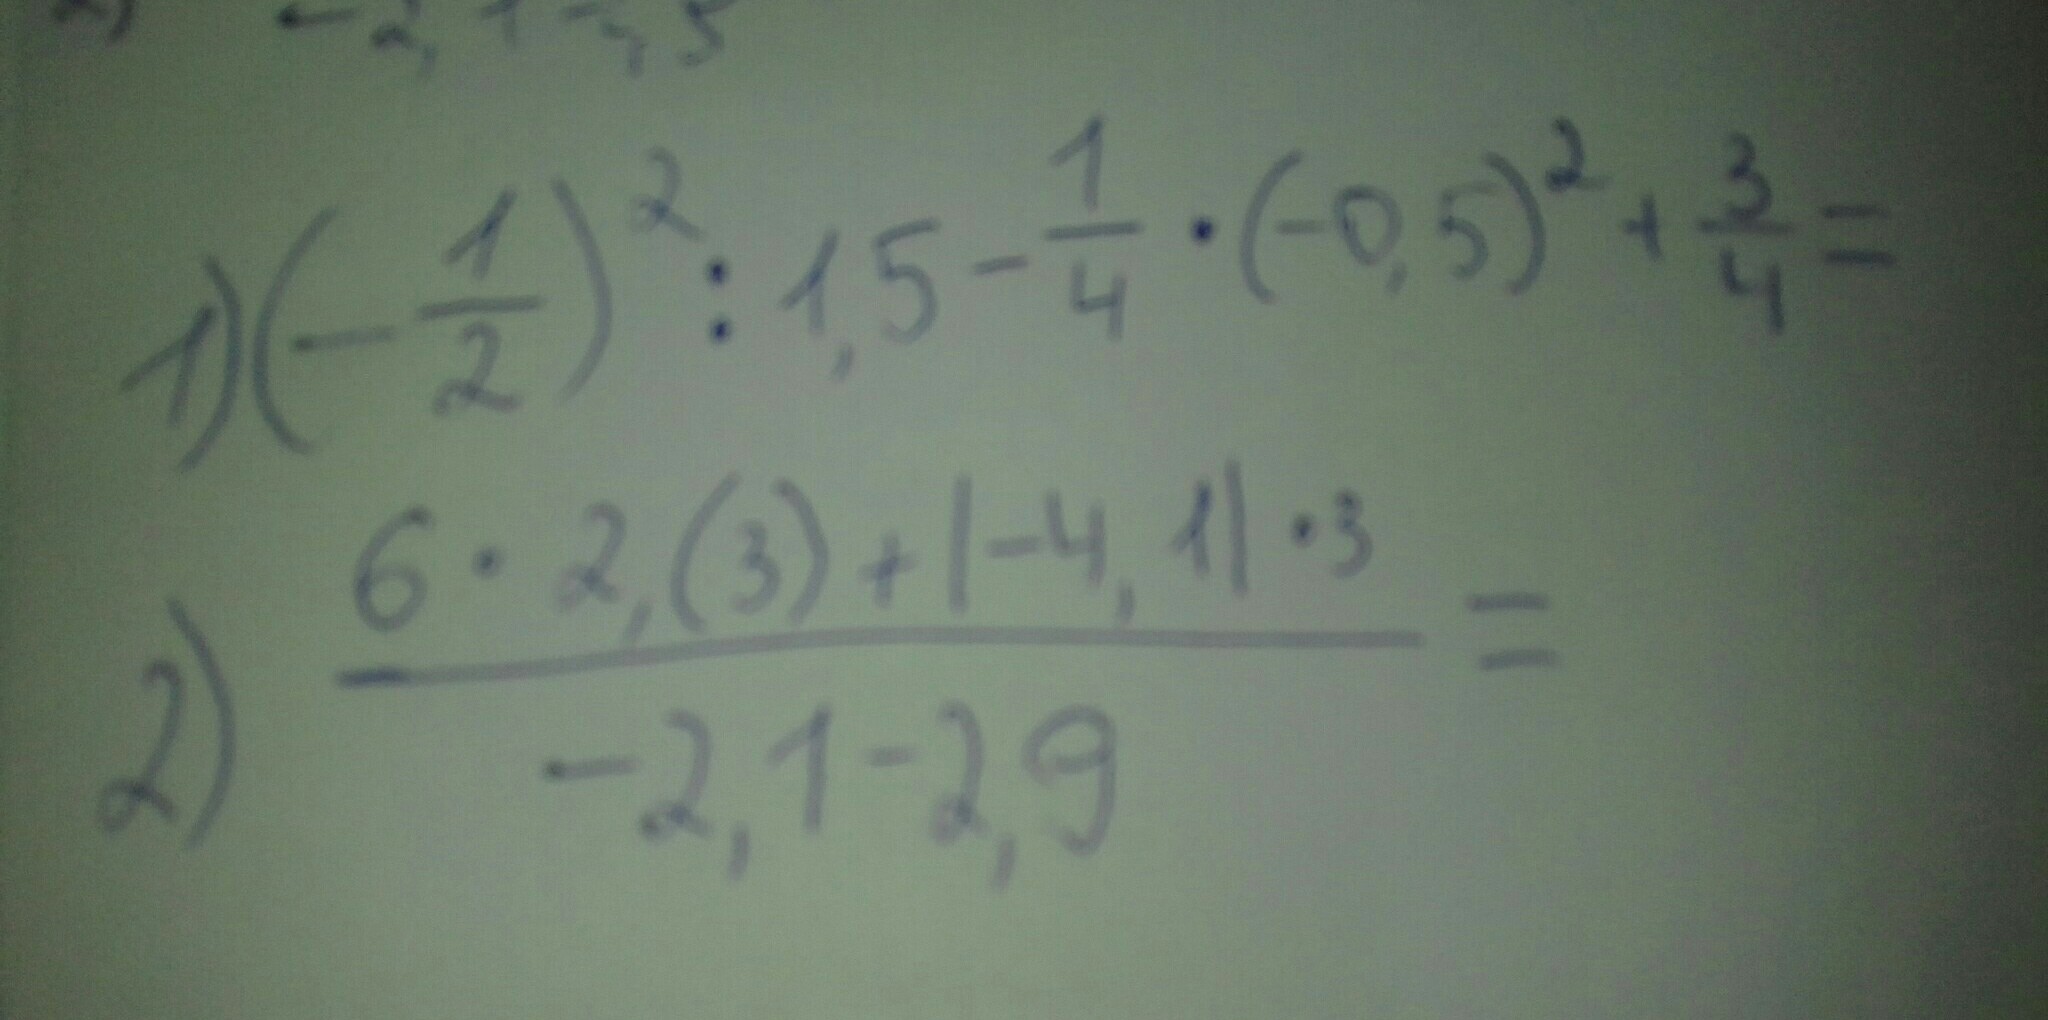 -2,1-2,9
1) (-1/2)² : 1,5 - 1/4 · (-0,5)² + 3/4 =
2) (6 · 2,(3) + |-4,1| · 3)/(-2,1-2,9) =